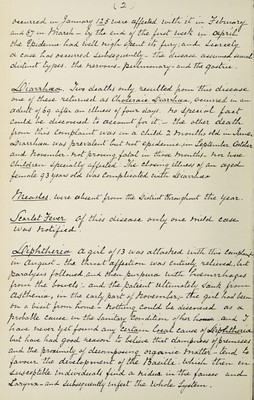 (2)
occurred in January 125 were affected with it in February
and 57 in March — by the end of the first week in April
the Epidemic had well nigh spent its fury, and scarcely
a case has occurred subsequently — the disease assumed usual
distinct types, the nervous, pulmonary, and the gastric.
Diarrhœa. Two deaths only resulted from this disease
one of these returned as Choleraic Diarrhœa, occurred in an
adult of 59 after an illness of four days. No special fact
could be discerned to account for it — the other death
from this complaint was in a child 2 months old in June.
Diarrhœa was prevalent but not epidemic in September October
and November, not proving fatal in those months. nor were
children specially affected. The closing illness of an aged
female 93 years old was complicated with Diarrhœa
Measles were absent from the District throughout the year.
Scarlet Fever. Of this disease only one mild case
was notified.
Diphtheria. A girl of 13 was attacked with this complaint
in August — the throat affection was entirely relieved, but
paralysis followed and then purpura with hœmorrhages
from the bowels — and the patient ultimately sank from
Asthenia, in the early part of November. The girl had been
on a visit from home — nothing could be discerned as a
probable cause in the Sanitary Condition of her house, and I
have never yet found any certain local cause of Diphtheria
but have had good reason to believe that dampness of premises
and the proximity of decomposing organic matter — tend to
favour the development of the Bacilli which then in
susceptible individuals find a nidus in the fauces and
Larynx — and subsequently infect the whole System.